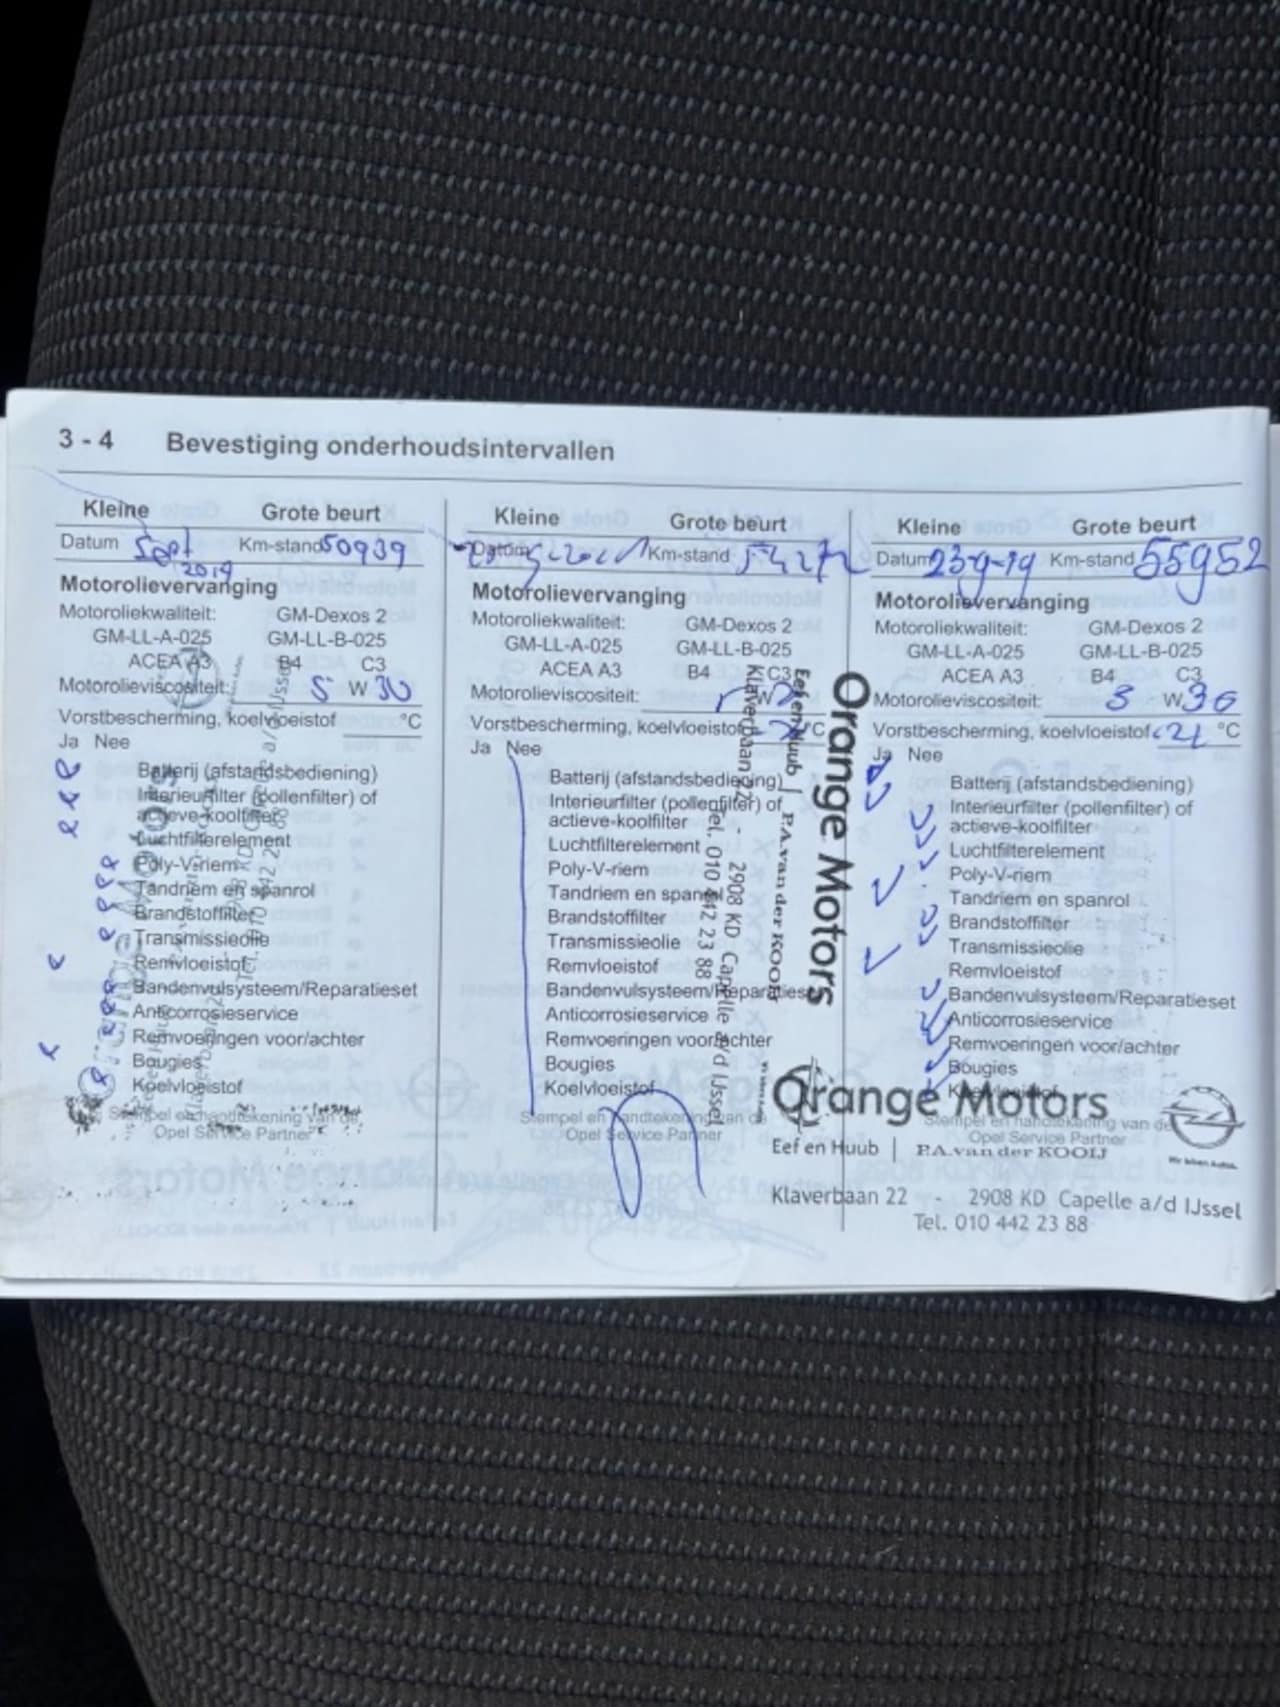 3 - 4 Bevestiging onderhoudsintervallen
Kleine Grote beurt
Datum Sept 2019 Km-stand 50939
Motorolievervanging
Motoroliekwaliteit: GM-Dexos 2
GM-LL-A-025 GM-LL-B-025
ACEA A3 B4 C3
Motorolieviscositeit: 5 W 30
Vorstbescherming, koelvloeistof °C
Ja Nee
Batterij (afstandsbediening)
Interieurfilter (pollenfilter) of
actieve-koolfilter
Luchtfilterelement
Poly-V-riem
Tandriem en spanrol
Brandstoffilter
Transmissieolie
Remvloeistof
Bandenvulsysteem/Reparatieset
Anticorrosieservice
Remvoeringen voor/achter
Bougies
Koelvloeistof
Stempel en handtekening van de
Opel Service Partner
Kleine Grote beurt
Datum Km-stand
Motorolievervanging
Motoroliekwaliteit: GM-Dexos 2
GM-LL-A-025 GM-LL-B-025
ACEA A3 B4 C3
Motorolieviscositeit: W
Vorstbescherming, koelvloeistof °C
Ja Nee
Batterij (afstandsbediening)
Interieurfilter (pollenfilter) of
actieve-koolfilter
Luchtfilterelement
Poly-V-riem
Tandriem en spanrol
Brandstoffilter
Transmissieolie
Remvloeistof
Bandenvulsysteem/Reparatieset
Anticorrosieservice
Remvoeringen voor/achter
Bougies
Koelvloeistof
Stempel en handtekening van de
Opel Service Partner
Orange Motors
Eef en Huub | P.A. van der KOOIJ
Klaverbaan 22 - 2908 KD Capelle a/d IJssel
Tel. 010 442 23 88
Kleine Grote beurt
Datum 23-9-19 Km-stand 55952
Motorolievervanging
Motoroliekwaliteit: GM-Dexos 2
GM-LL-A-025 GM-LL-B-025
ACEA A3 B4 C3
Motorolieviscositeit: 5 W 30
Vorstbescherming, koelvloeistof <21 °C
Ja Nee
Batterij (afstandsbediening)
Interieurfilter (pollenfilter) of
actieve-koolfilter
Luchtfilterelement
Poly-V-riem
Tandriem en spanrol
Brandstoffilter
Transmissieolie
Remvloeistof
Bandenvulsysteem/Reparatieset
Anticorrosieservice
Remvoeringen voor/achter
Bougies
Koelvloeistof
Stempel en handtekening van de
Opel Service Partner
Orange Motors
Eef en Huub | P.A. van der KOOIJ
Wir leben Autos.
Klaverbaan 22 - 2908 KD Capelle a/d IJssel
Tel. 010 442 23 88